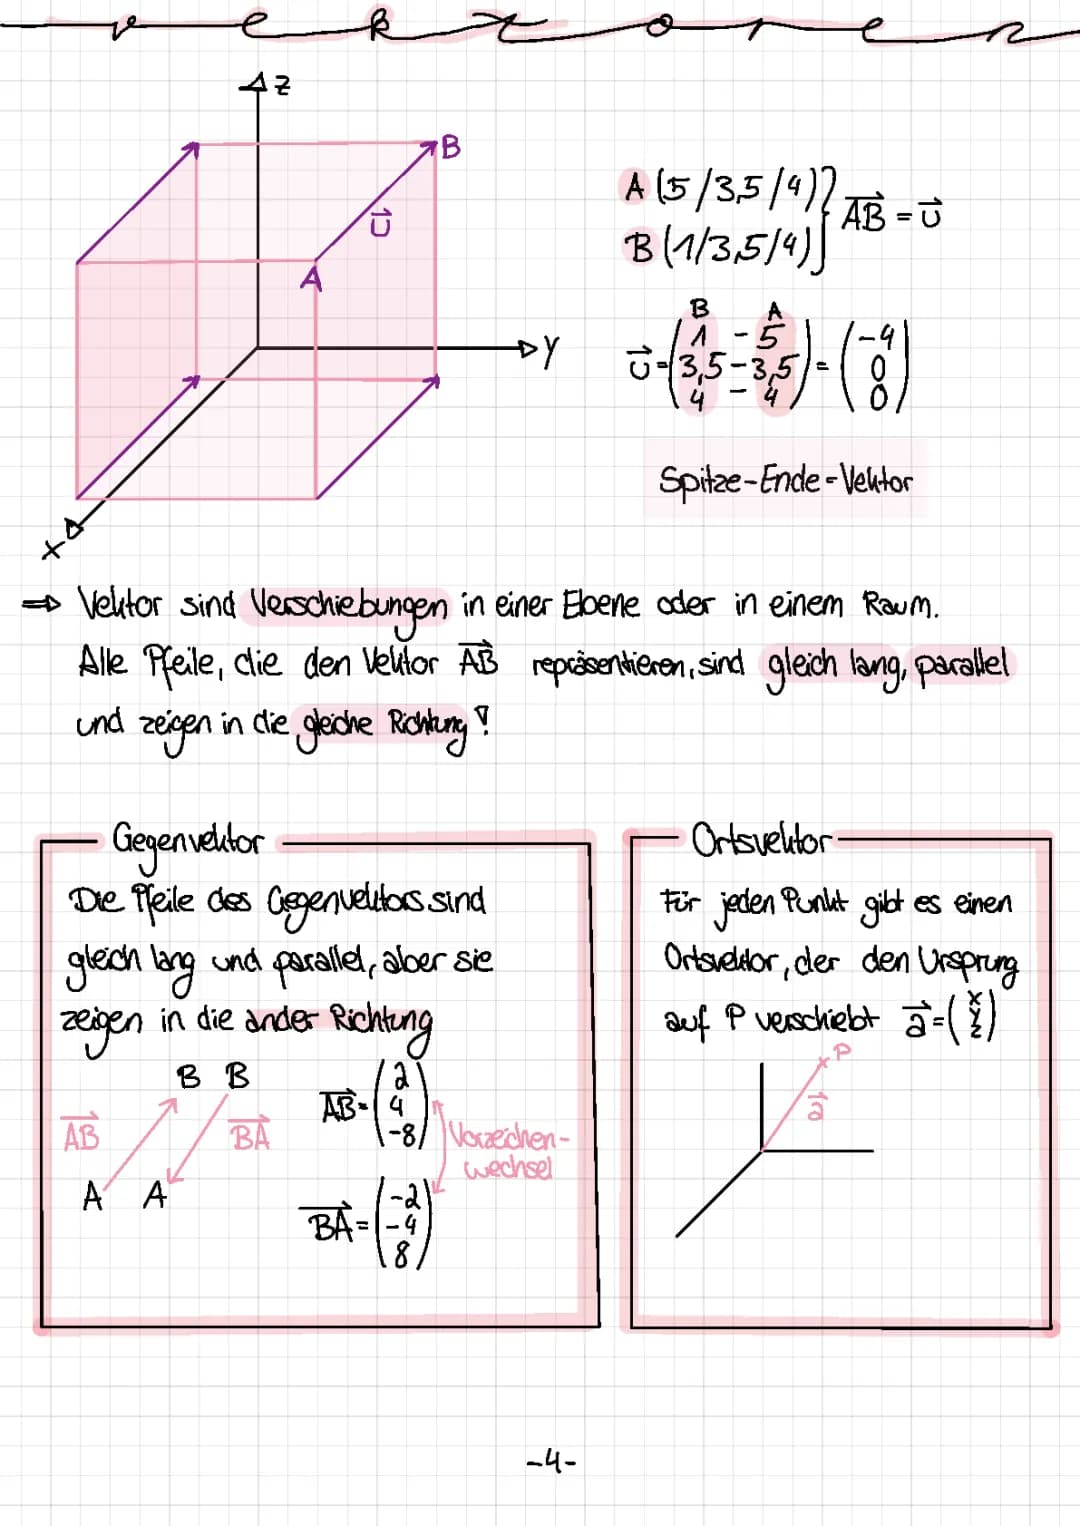 vektoren
z
B
u⃗
A
y
x
A (5/3,5/4)
B (1/3,5/4)
} A⃗B⃗ = u⃗
B A
u⃗ = (1 - 5
3,5 - 3,5
4 - 4) = (-4
0
0)
Spitze-Ende-Vektor
⇒ Vektor sind Verschiebungen in einer Ebene oder in einem Raum.
Alle Pfeile, die den Vektor A⃗B⃗ repräsentieren, sind gleich lang, parallel
und zeigen in die gleiche Richtung!
Gegenvektor
Die Pfeile des Gegenvektors sind
gleich lang und parallel, aber sie
zeigen in die ander Richtung
B B
A⃗B⃗
B⃗A⃗
A A
A⃗B⃗ = (2
4
-8)
Vorzeichen-
wechsel
B⃗A⃗ = (-2
-4
8)
Ortsvektor
Für jeden Punkt gibt es einen
Ortsvektor, der den Ursprung
auf P verschiebt a⃗ = (x
y
z)
P
a⃗
-4-